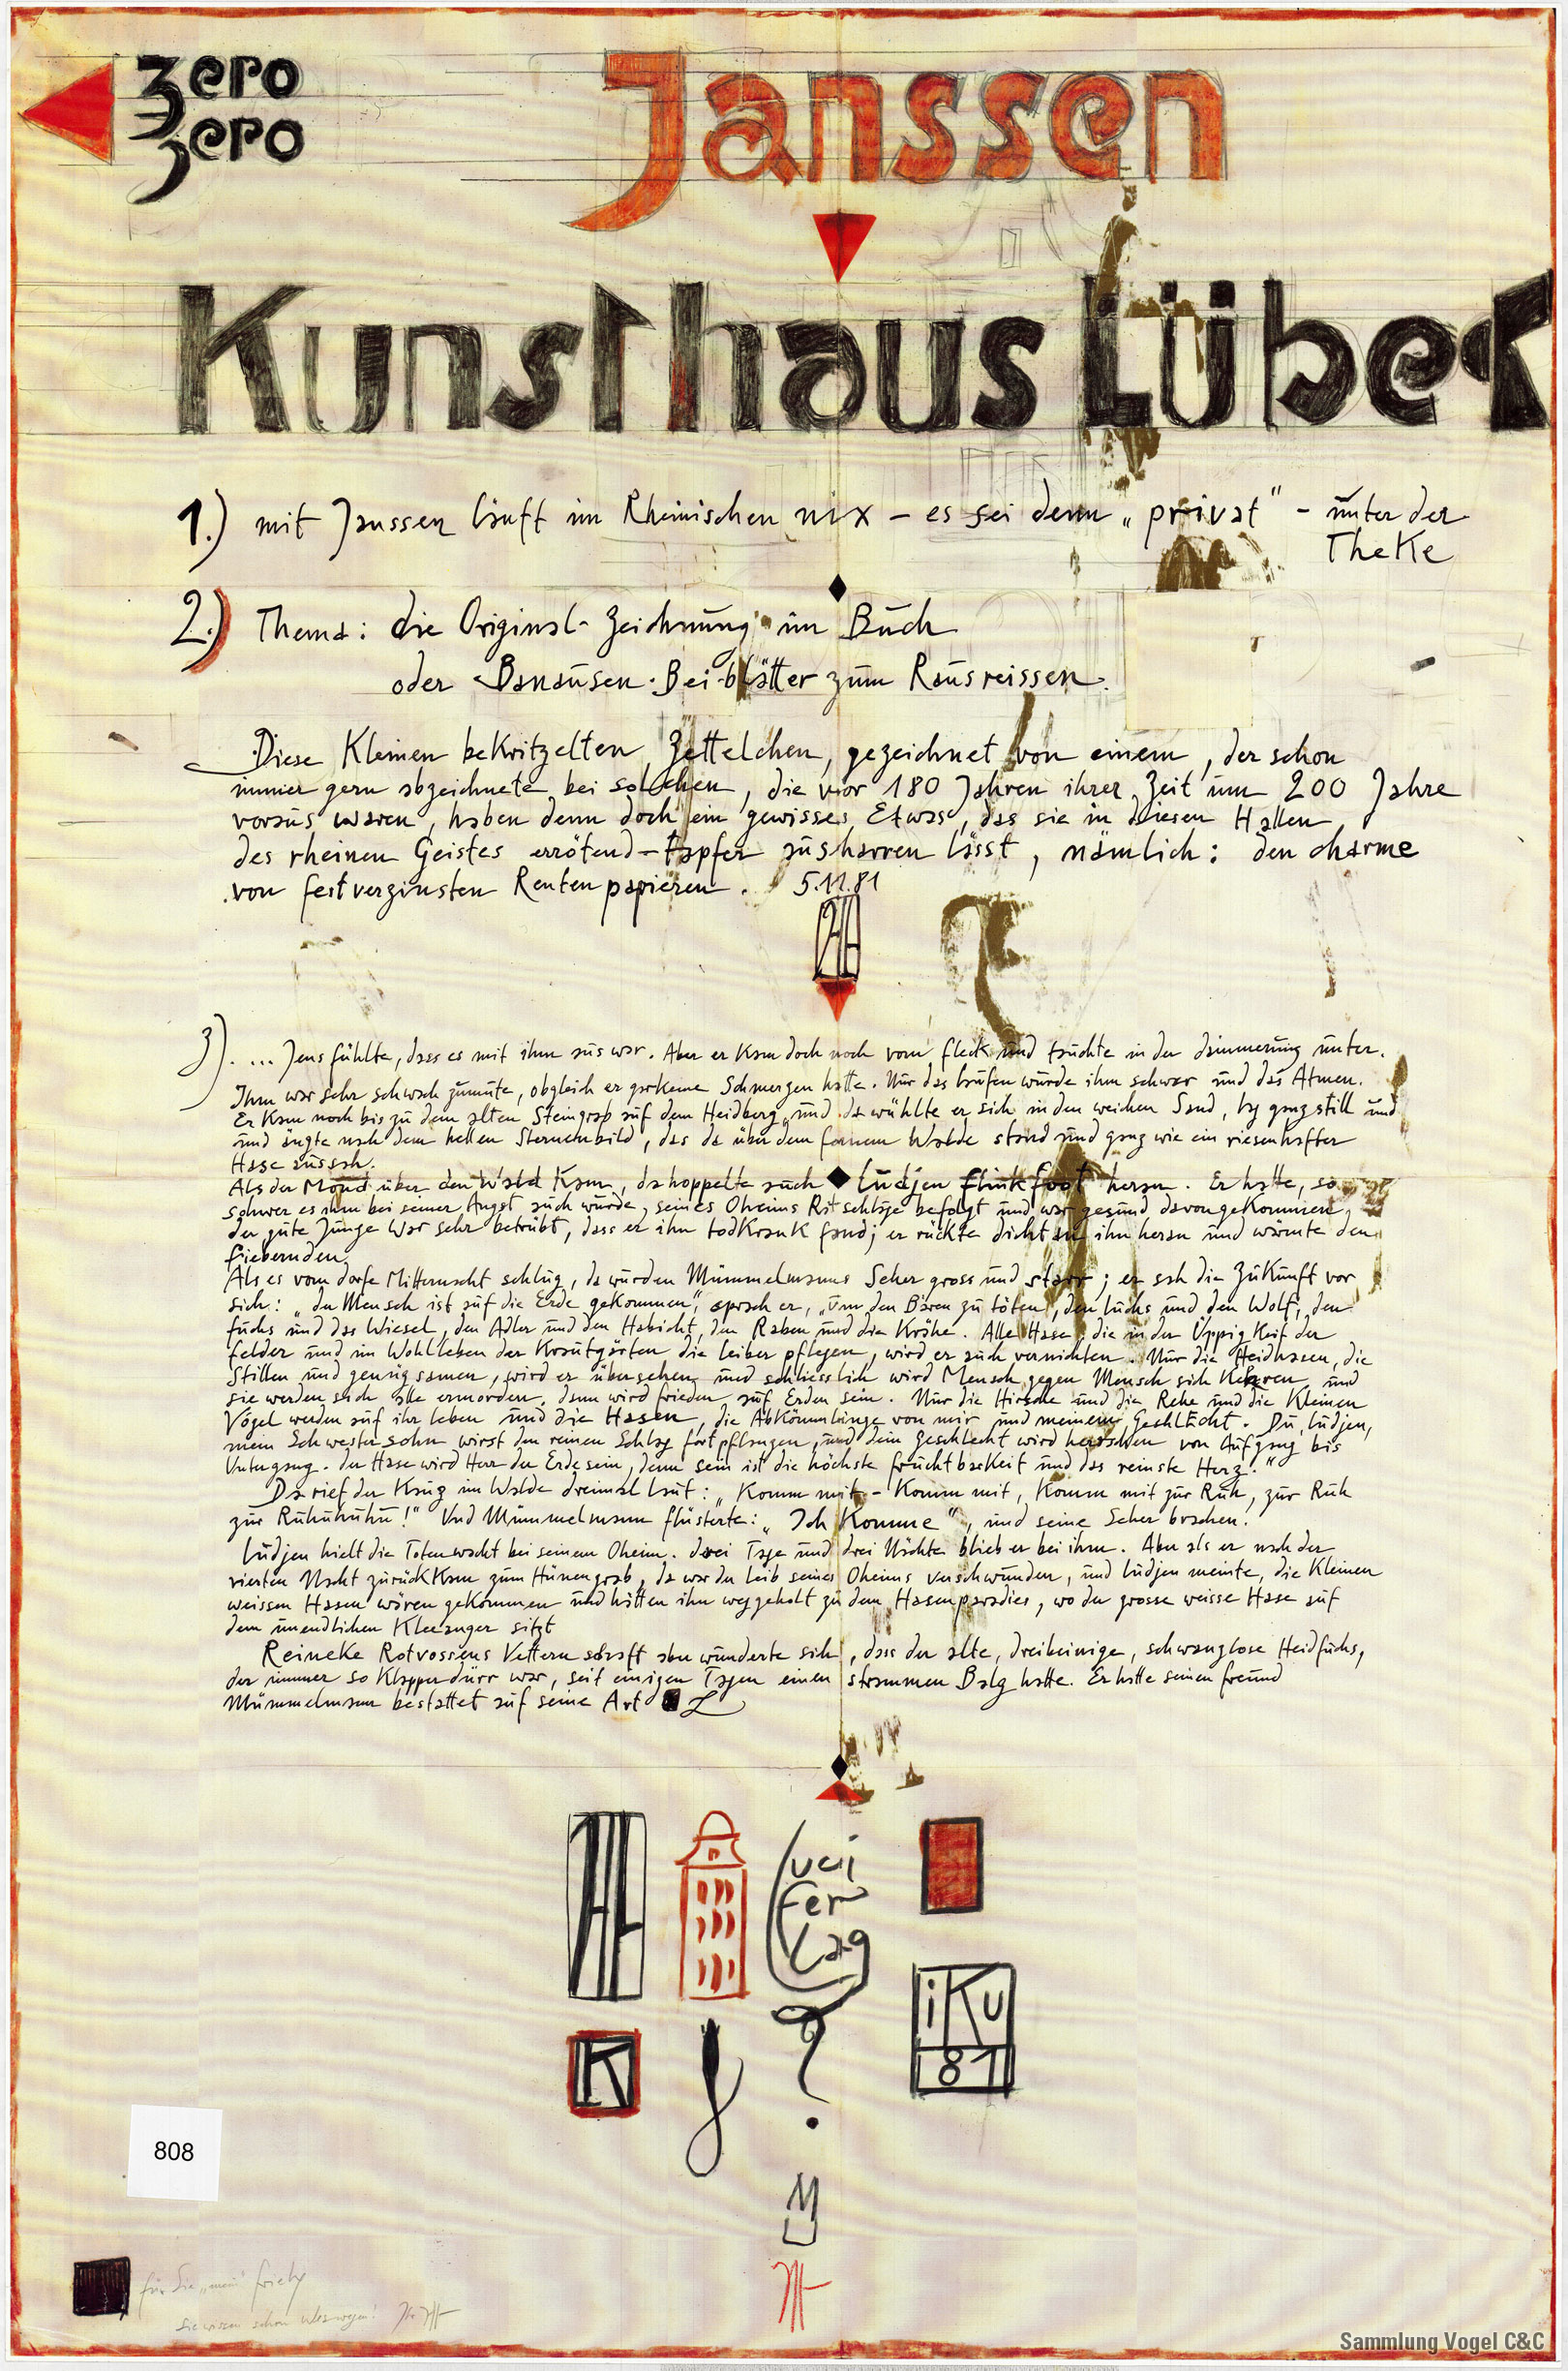 zero
zero
Janssen
Kunsthaus Lübeck
1.) mit Janssen läuft im Rheinischen nix – es sei denn „privat" – unter der
Theke
2.) Thema: die Original-Zeichnung im Buch
oder Banausen-Bei-blätter zum Rausreissen.
Diese Kleinen beKritzelten Zettelchen, gezeichnet von einem, der schon
immer gern abzeichnete bei solchen, die vor 180 Jahren ihrer Zeit um 200 Jahre
voraus waren, haben denn doch ein gewisses Etwas, das sie in diesen Hallen
des rheinen Geistes errötend-tapfer ausharren lässt, nämlich: den charme
von festverzinsten Rentenpapieren. 5.11.81
3). ... Jens fühlte, dass es mit ihm aus war. Aber er Kam doch noch vom fleck und tauchte in der dämmerung unter.
Ihm war sehr schwach zumute, obgleich er garkeine Schmerzen hatte. Nur das laufen wurde ihm schwer und das Atmen.
Er Kam noch bis zu dem alten Steingrab auf dem Heidberg und da wühlte er sich in den weichen Sand, lag ganz still und
und äugte nach dem hellen Sternenbild, das da über dem fernen Walde stand und ganz wie ein riesenhafter
Hase aussah.
Als der Mond über den Wald Kam, da hoppelte auch Ludjen flinkfoot heran. Er hatte, so
schwer es ihm bei seiner Angst auch wurde, seines Oheims Ratschläge befolgt und war gesund davongeKommen,
der gute Junge War sehr betrübt, dass er ihn todKrank fand; er rückte dicht an ihn heran und wärmte den
fiebernden.
Als es vom dorfe Mitternacht schlug, da wurden Mümmelmanns Seher gross und starr; er sah die ZuKunft vor
sich: „der Mensch ist auf die Erde gekommen", sprach er, „um den Bären zu töten, den luchs und den Wolf, den
fuchs und das Wiesel, den Adler und den Habicht, den Raben und die Krähe. Alle Hasen, die in der ÜppigKeit der
felder und im Wohlleben der Krautgärten die leiber pflegen, wird er auch vernichten. Nur die Heidhasen, die
Stillen und genügsamen, wird er übersehen und schliesslich wird Mensch gegen Mensch sich Kehren und
sie werden sich alle ermorden. dann wird frieden auf Erden sein. Nur die Hirsche und die Rehe und die Kleinen
Vögel werden auf ihr leben und die Hasen, die AbKömmlinge von mir und meinem Geschlecht. Du, ludjen,
mein Schwestersohn wirst den reinen Schlag fortpflanzen, und dein Geschlecht wird herrschen von Aufgang bis
Untergang. der Hase wird Herr der Erde sein, denn sein ist die höchste fruchtbarKeit und das reinste Herz."
Da rief der Kauz im Walde dreimal laut: „Komm mit – Komm mit, Komm mit zur Ruh, zur Ruh
zur Ruhuhuhu!" Und Mümmelmann flüsterte: „Ich Komme", und seine Seher brachen.
ludjen hielt die Totenwacht bei seinem Oheim. drei Tage und drei Nächte blieb er bei ihm. Aber als er nach der
vierten Nacht zurückKam zum Hünengrab, da war der leib seines Oheims verschwunden, und ludjen meinte, die Kleinen
weissen Hasen wären gekommen und hätten ihn weggeholt zu dem Hasenparadies, wo der grosse weisse Hase auf
dem unendlichen Kleeanger sitzt
Reineke Rotvossens Vetternschaft aber wunderte sich, dass der alte, dreibeinige, schwanzlose Heidfuchs,
der immer so Klapperdürr war, seit einigen Tagen einen strammen Balg hatte. Er hatte seinen freund
Mümmelmann bestattet auf seine Art
fer
lag
iKu
81
K
?
808
für Sie
Sammlung Vogel C&C